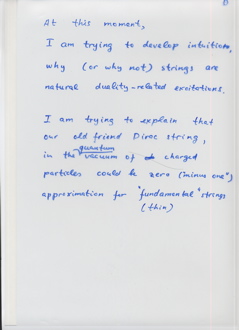 At this moment,
I am trying to develop intuition,
why (or why not) strings are
natural duality-related excitations.
I am trying to explain that
our old friend Dirac string,
in the quantum vacuum of charged
particles could be zero ("minus one")
approximation for "fundamental" strings
(thin)